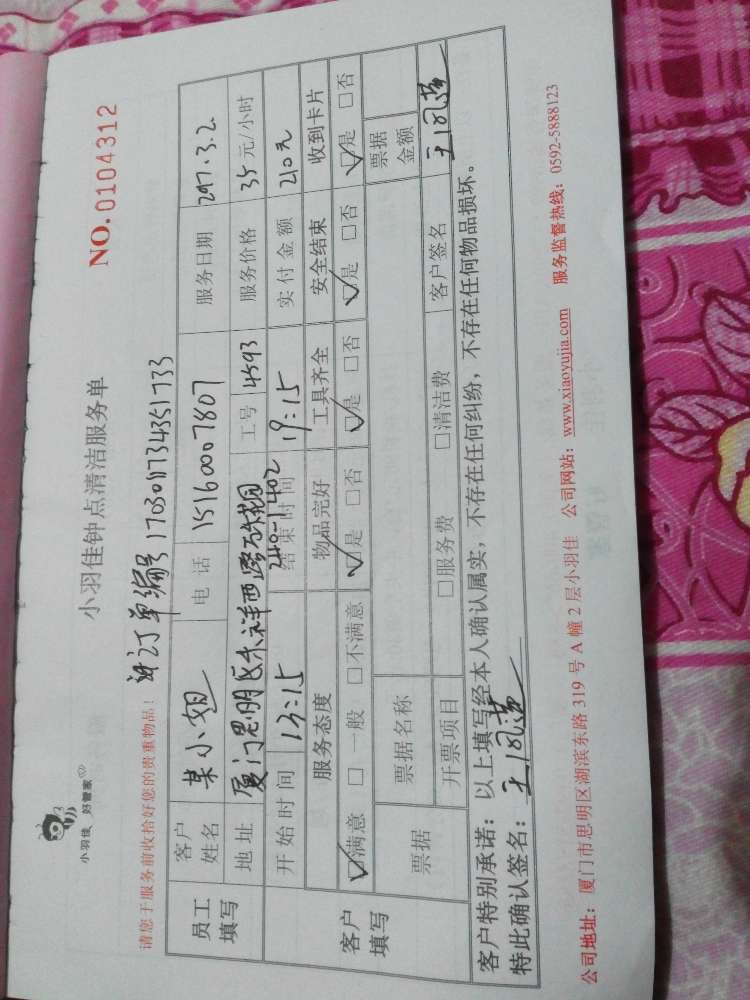 小羽佳 好管家
小羽佳钟点清洁服务单
NO.0104312
请您于服务前收拾好您的贵重物品！ 订单编号 170301734351733
员工填写
客户姓名 某小姐 电话 15160007807 服务日期 2017.3.2
地址 厦门思明区禾祥西路 240-1402 工号 4593 服务价格 35元/小时
开始时间 13:15 结束时间 19:15 实付金额 210元
客户填写
服务态度 物品完好 工具齐全 安全结束 收到卡片
☑满意 □一般 □不满意 ☑是 □否 ☑是 □否 ☑是 □否 ☑是 □否
票据 票据名称 票据金额
开票项目 □服务费 □清洁费 客户签名
客户特别承诺：以上填写经本人确认属实，不存在任何纠纷，不存在任何物品损坏。
特此确认签名：
公司地址：厦门市思明区湖滨东路 319 号 A 幢 2 层小羽佳 公司网站：www.xiaoyujia.com 服务监督热线：0592-5888123